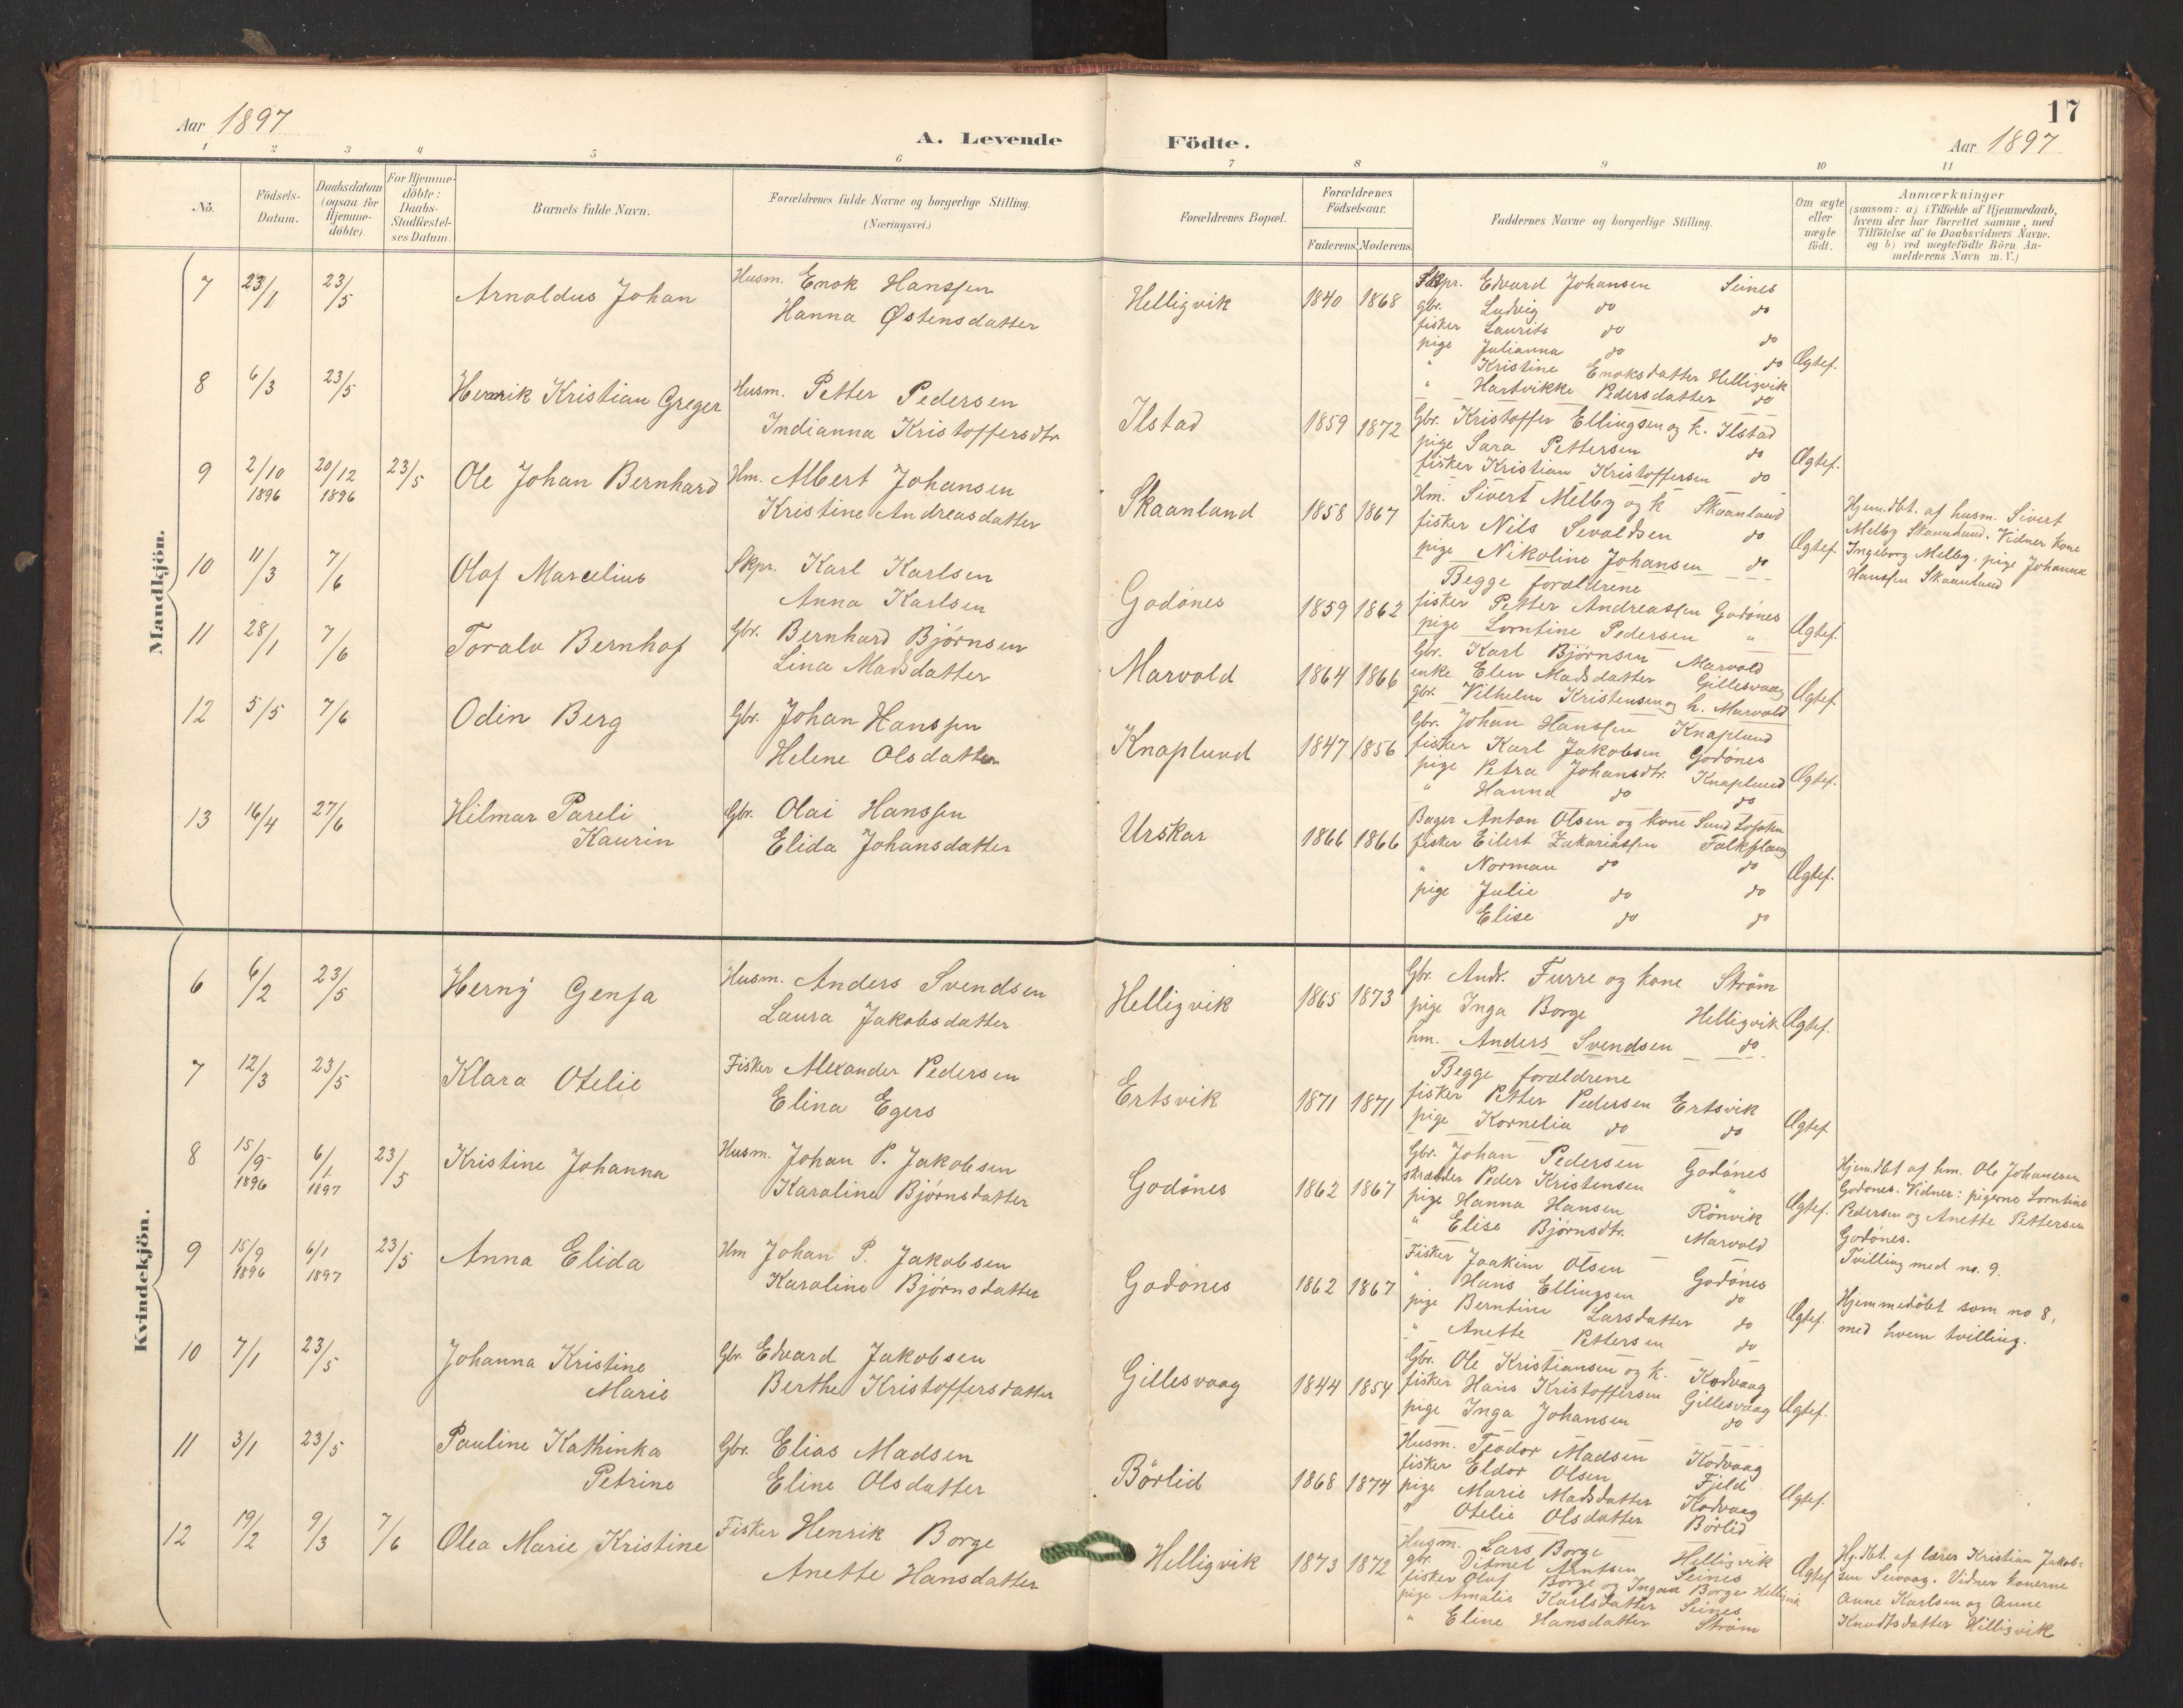 17
Aar 1897
A. Levende Födte.
Aar 1897
1 2 3 4 5 6 7 8 9 10 11
No.
Födsels-Datum.
Daabsdatum (ogsaa for Hjemme-döbte).
For Hjemme-döbte: Daabs-Stadfæstel-ses Datum.
Barnets fulde Navn.
Forældrenes fulde Navne og borgerlige Stilling.
(Næringsvei.)
Forældrenes Bopæl.
Forældrenes Födselsaar.
Faderens. Moderens.
Faddernes Navne og borgerlige Stilling.
Om ægte eller uægte født.
Anmærkninger
(saasom: a) i Tilfælde af Hjemmedaab,
hvem der har forrettet samme, med
Tilföielse af to Daabsvidners Navne.
og b) ved uægtefödte Börn An-
melderens Navn m. V.)
Mandkjön.
7 23/1 23/5 Arnoldus Johan
Husm. Enok Hanssen
Hanna Østensdatter
Helligvik 1840 1868
Skpr. Edvard Johansen Seines
gbr. Ludvig do do
fisker Laurits do do
pige Julianna do do
" Kristine Enoksdatter Helligvik
" Hartvikke Pedersdatter do
Ægtef.
8 6/3 23/5 Henrik Kristian Greger
Husm. Petter Pedersen
Indianna Kristoffersdtr.
Ilstad 1859 1872
Gbr. Kristoffer Ellingsen og k. Ilstad
pige Sara Pettersen do
fisker Kristian Kristoffersen do
Ægtef.
9 2/10 1896 20/12 1896 23/5 Ole Johan Bernhard
Hm. Albert Johansen
Kristine Andreasdatter
Skaanland 1858 1867
Hm. Sivert Melby og k Skaanland
fisker Nils Sevaldsen do
pige Nikoline Johansen do
Ægtef.
Hjem.dbt. af husm. Sivert
Melby Skaanland. Vidner kone
Ingeborg Melby, pige Johanna
Hanssen Skaanland
10 11/3 7/6 Olaf Marcelius
Skpr. Karl Karlsen
Anna Karlsen
Godönes 1859 1862
Begge forældrene
fisker Petter Andreassen Godönes
pige Lorntine Pedersen "
Ægtef.
11 28/1 7/6 Toralv Bernhof
Gbr. Bernhard Bjørnsen
Lina Madsdatter
Marvold 1864 1866
Gbr. Karl Bjørnsen Marvold
enke Elen Madsdatter Gillesvaag
gbr. Vilhelm Kristensen og h. Marvold
Ægtef.
12 5/5 7/6 Odin Berg
Gbr. Johan Hanssen
Helene Olsdatter
Knaplund 1847 1856
Gbr. Johan Hanssen Knaplund
fisker Karl Jakobsen Godönes
pige Petra Johansdtr. Knaplund
" Hanna do do
Ægtef.
13 16/4 27/6 Hilmar Pareli
Kaurin
Gbr. Olai Hanssen
Elida Johansdatter
Urskar 1866 1866
Bager Anton Olsen og kone Sund Lofoten
fisker Eilert Zakariassen Falkflaug
" Norman do do
pige Julie do do
Elise do do
Ægtef.
Kvindekjön.
6 6/2 23/5 Herny Genja
Husm. Anders Svendsen
Laura Jakobsdatter
Helligvik 1865 1873
Gbr. Andr. Furre og kone Ström
pige Inga Borge Helligvik
hm. Anders Svendsen do
Ægtef.
7 12/3 23/5 Klara Otelie
Fisker Alexander Pedersen
Elina Egers
Ertsvik 1871 1871
Begge forældrene
fisker Petter Pedersen Ertsvik
pige Kornelia do do
Ægtef.
8 15/9 1896 6/1 1897 23/5 Kristine Johanna
Husm. Johan P. Jakobsen
Karoline Bjørnsdatter
Godönes 1862 1867
Gbr. Johan Pedersen Godönes
skrædder Peder Kristensen "
pige Hanna Hansen Rönvik
" Elise Bjørnsdtr. Marvold
Ægtef.
Hjem.dbt af hm. Ole Johansen
Godönes. Vidner: pigerne Lorntine
Pedersen og Anette Pettersen
Godönes.
Tvilling med no. 9.
9 15/9 1896 6/1 1897 23/5 Anna Elida
Hm Johan P. Jakobsen
Karoline Bjørnsdatter
Godönes 1862 1867
Fisker Joakim Olsen Godönes
" Hans Ellingsen do
pige Berntine Larsdatter do
" Anette Pettersen do
Ægtef.
Hjemmedöbt som no 8,
med hvem tvilling.
10 7/1 23/5 Johanna Kristine
Marie
Gbr. Edvard Jakobsen
Berthe Kristoffersdatter
Gillesvaag 1844 1854
Gbr. Ole Kristiansen og k. Kodvaag
fisker Hans Kristoffersen Gillesvaag
pige Inga Johansen do
Ægtef.
11 3/1 23/5 Pauline Kathinka
Petrine
Gbr. Elias Madsen
Eline Olsdatter
Börlid 1868 1874
Husm. Teodor Madsen Kodvaag
fisker Eldor Olsen Fjeld
pige Marie Madsdatter Kodvaag
" Otelie Olsdatter Börlid
Ægtef.
12 19/2 9/3 7/6 Olea Marie Kristine
Fisker Henrik Borge
Anette Hansdatter
Helligvik 1873 1872
Husm. Lars Borge Helligvik
gbr. Ditmel Arntsen Seines
fisker Oluf Borge og Ingaa Borge Helligvik
pige Amalie Karlsdatter Seines
" Eline Hansdatter Ström
Ægtef.
Hj.dbt. af lærer Kristian Jakob-
sen Seivaag. Vidner konerne
Anne Karlsen og Anne
Knudtsdatter Helligvik